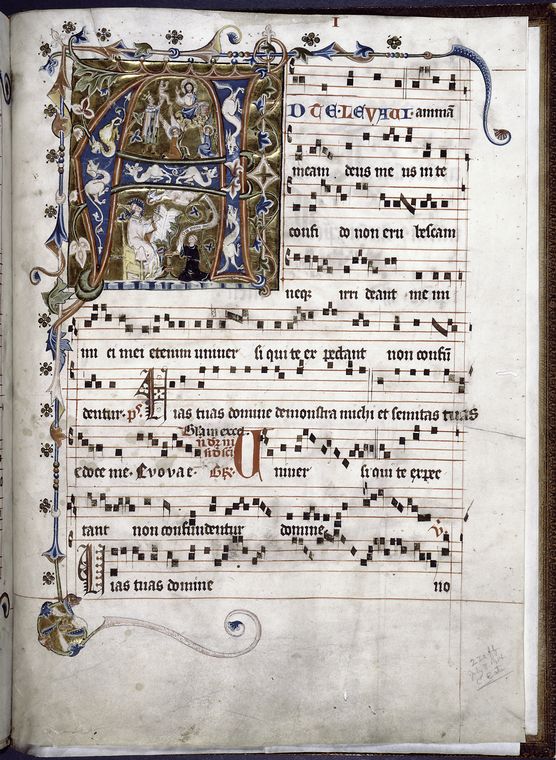 I
AD TE LEVAVI animā
meam deus me us in te
confi do non eru bescam
neqz irri deant me ini
mi ci mei etenim univer si qui te ex pectant non confū
dentur. ps. Vias tuas domine demonstra michi et semitas tuas
edoce me. Evovae. Gr. Univer si qui te expec
tant non confundentur domine. V.
Vias tuas domine no